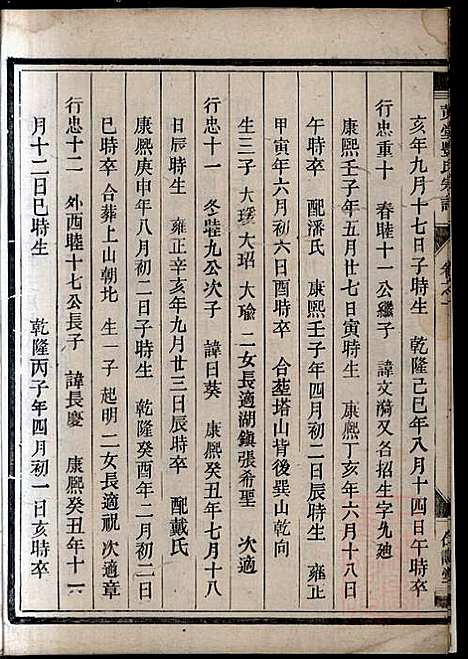 亥年九月十七日子時生 乾隆己巳年八月十四日午時卒
行忠重十 春睦十一公繼子 諱文漪又名招生字九廸
康熙壬子年五月廿七日寅時生 康熙丁亥年六月十八日
午時卒 配潘氏 康熙壬子年四月二日辰時生 雍正
甲寅年六月初六日酉時卒 合塟塔山背後巽山乾向
生三子 大瑷大玿大瑜 二女長適湖鎮張希聖 次適
行忠十一 冬睦九公次子 諱日葵 康熙癸丑年七月十八
日辰時生 雍正辛亥年九月廿三日辰時卒 配戴氏
康熙庚申年八月初二日子時生 乾隆癸酉年二月初二日
巳時卒 合葬上山朝北 生一子 起明二女長適祝 次適章
行忠十二 外西睦十七公長子 諱長慶 康熙癸丑年十一
月十二日巳時生 乾隆丙子年四月初一日亥時卒